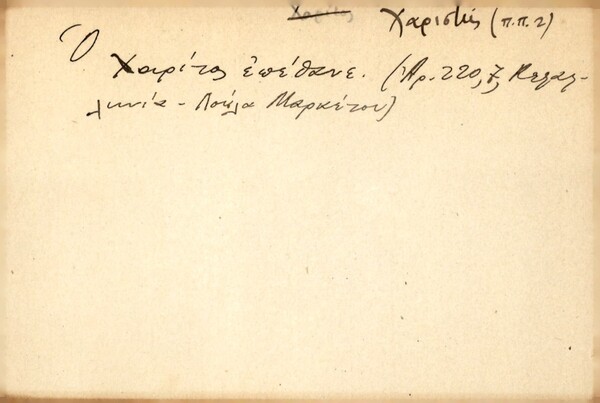 Χαρίτος Χαριστής (π.π. 2)
Ὁ Χαρίτος ἐπέθανε. (Ἀρ. 220, 7, Κεφαλ-
ληνία - Λούλα Μαρκέτου)